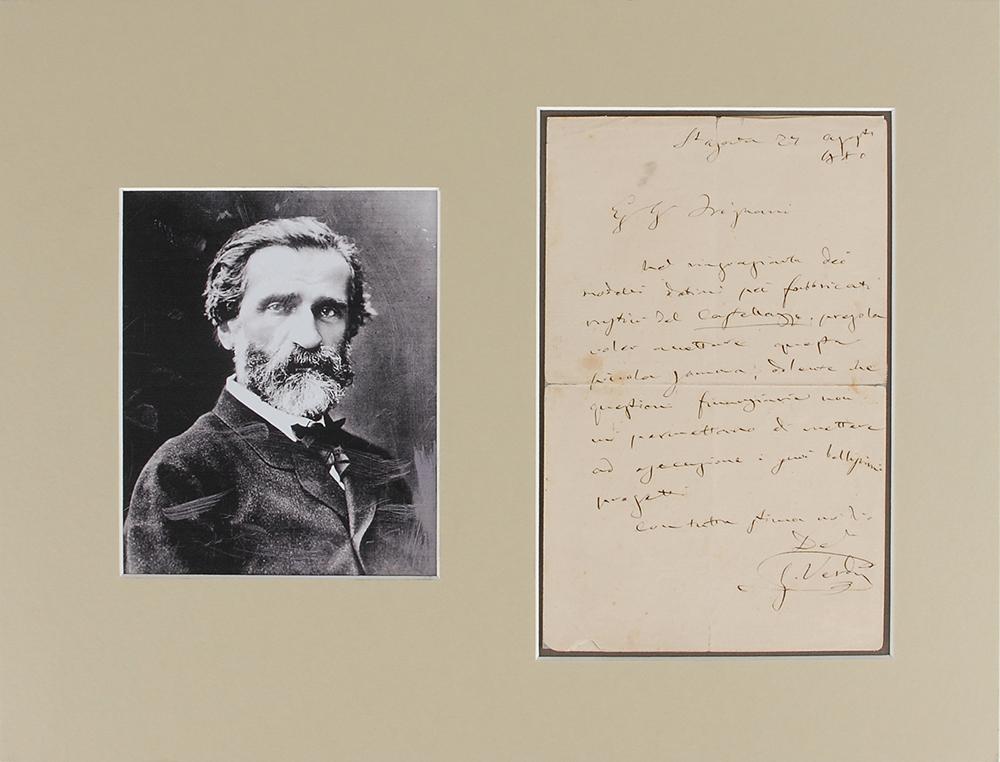 St agata 27 agosto
Eg Sr
Nel ringraziarla dei
modelli datimi pei fabbricati
rustici del Castellazzo, pregola
voler accettare questa
piccola somma, dolente che
questioni finanziarie non
mi permettano di mettere
ad esecuzione i suoi bellissimi
progetti
Con tutta stima mi dico
Dev
G. Verdi